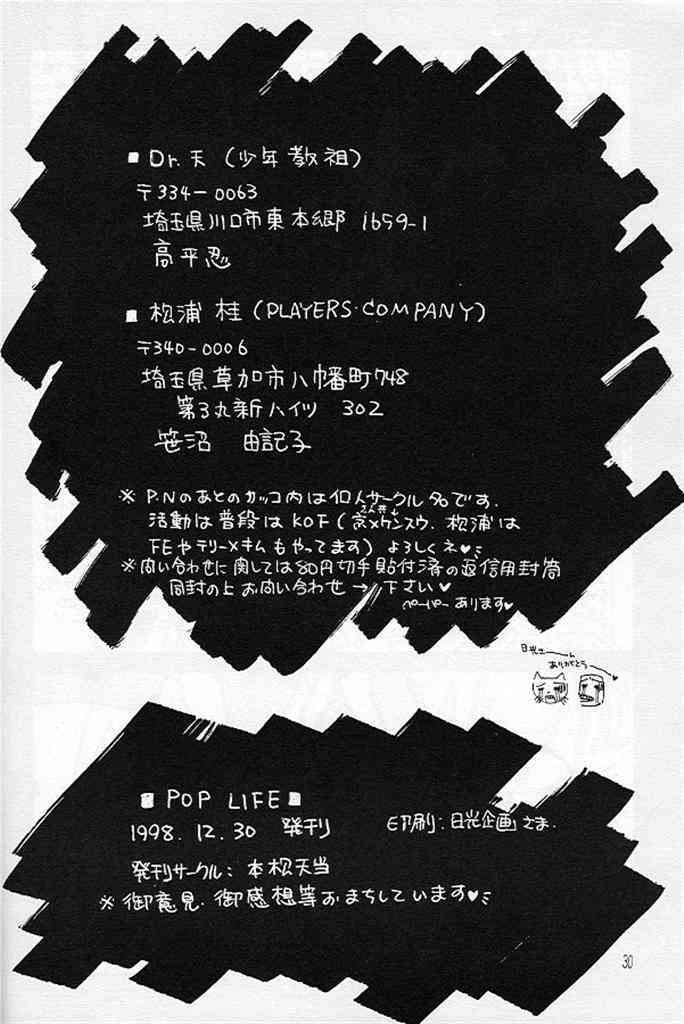 ■ Dr.天 (少年教祖)
〒334-0063
埼玉県川口市東本郷 1659-1
高平忍
■ 松浦 桂 (PLAYERS・COMPANY)
〒340-0006
埼玉県草加市八幡町748
第3丸新ハイツ 302
笹沼 由記子
※ P.Nのあとのカッコ内は個人サークル名です.
活動は普段はKOF(京×ケンスウ. 松浦は
FEやテリー×キムもやってます) よろしくネ♥
※問い合わせに関しては80円切手貼付済の返信用封筒
同封の上お問い合わせ → 下さい♥
ペーパーあります♥
日光さーん
ありがとう ♥
■ POP LIFE ■
1998. 12. 30 発刊 印刷: 日光企画さま.
発刊サークル: 本松天当
※ 御意見. 御感想等おまちしています♥
30